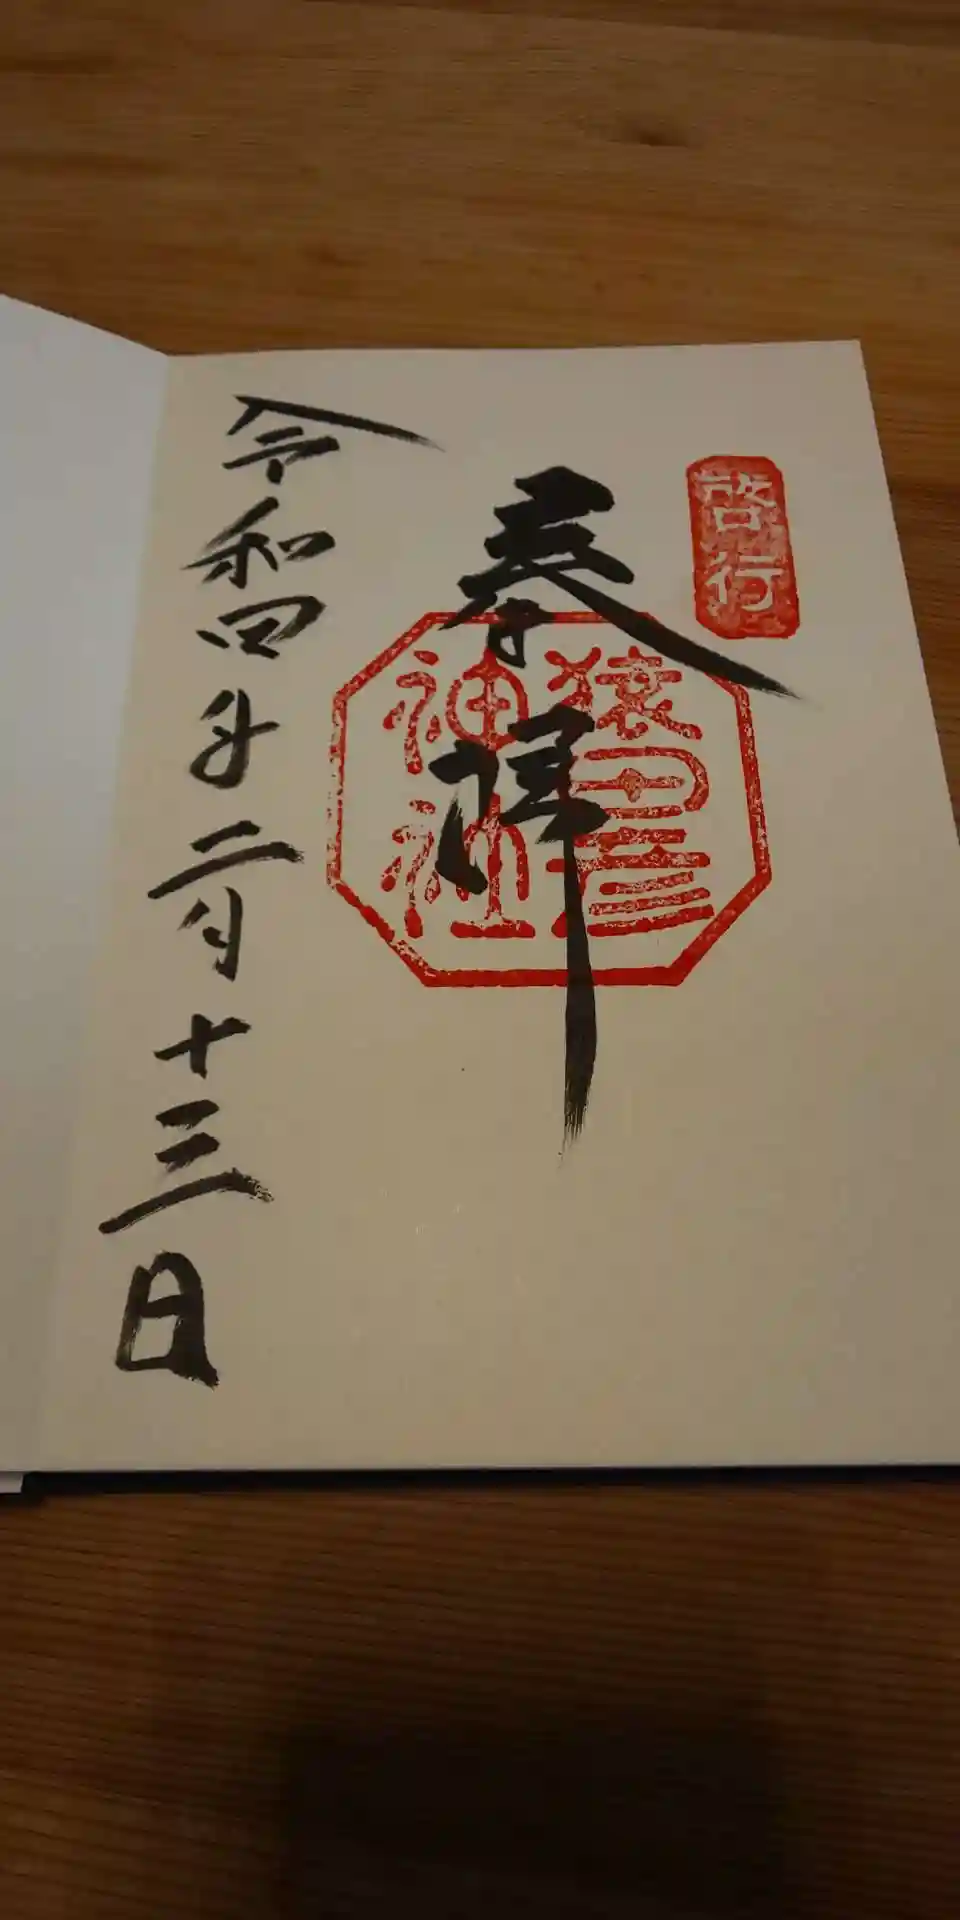 啓行
奉拝
猿田彦
神社
令和四年二月十三日